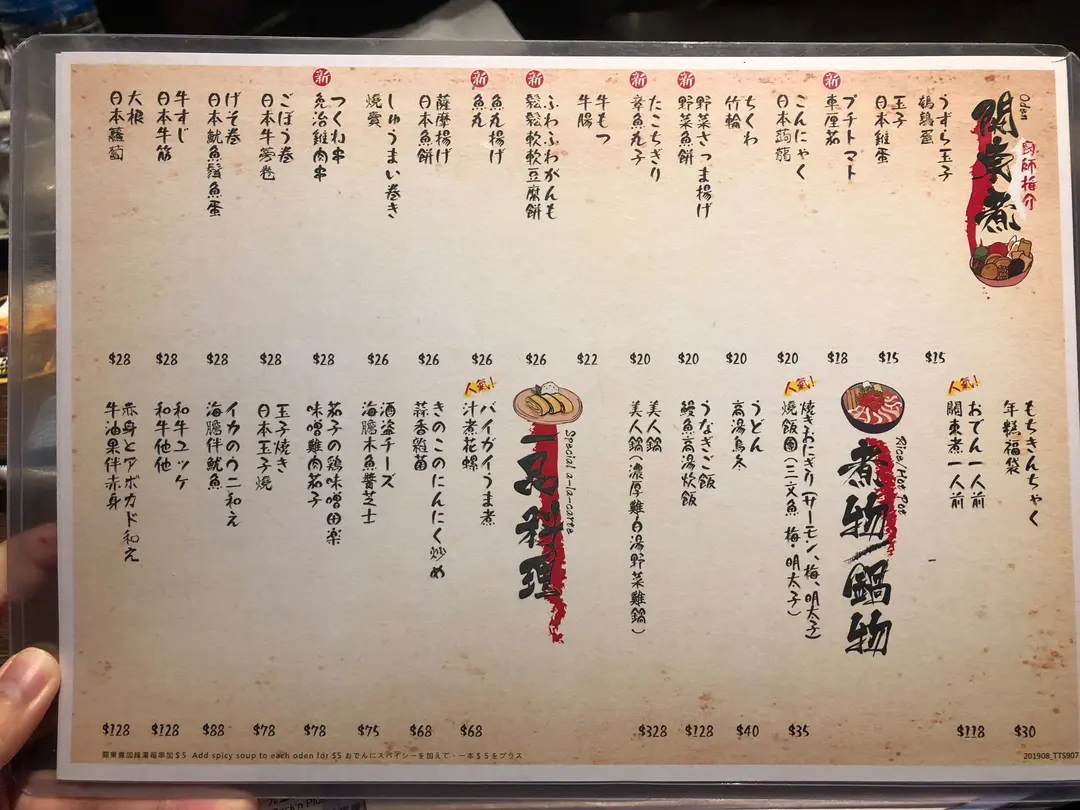 Oden
關東煮
廚師推介
うずら玉子
鵪鶉蛋
$15
玉子
日本雞蛋
$15
新
プチトマト
車厘茄
$18
こんにゃく
日本蒟蒻
$20
ちくわ
竹輪
$20
新
野菜さつま揚げ
野菜魚餅
$20
新
たこちぎり
章魚丸子
$20
牛もつ
牛腸
$22
新
ふわふわがんも
鬆鬆軟軟豆腐餅
$26
新
魚丸揚げ
魚丸
$26
薩摩揚げ
日本魚餅
$26
しゅうまい巻き
燒賣
$26
新
つくね串
魚治雞肉串
$28
ごぼう巻
日本牛蒡卷
$28
げそ巻
日本魷魚鬚魚蛋
$28
牛すじ
日本牛筋
$28
大根
日本蘿蔔
$28
もちきんちゃく
年糕福袋
$30
人氣!
おでん一人前
關東煮一人前
$118
Rice/Hot Pot
煮物/鍋物
人氣!
焼きおにぎり(サーモン、梅、明太子)
燒飯團(三文魚、梅・明太子)
$35
うどん
高湯烏冬
$40
うなぎご飯
鰻魚高湯炊飯
$128
美人鍋
美人鍋(濃厚雞白湯野菜雞鍋)
$328
Special a-la-carte
一品料理
人氣!
バイガイうま煮
汁煮花螺
$68
きのこのにんにく炒め
蒜香雜菌
$68
酒盗チーズ
酒盜木魚醬芝士
$75
茄子の鶏味噌田楽
味噌雞肉茄子
$78
玉子焼き
日本玉子燒
$78
イカのウニ和え
海膽伴魷魚
$88
和牛ユッケ
和牛他他
$128
赤身とアボカド和え
牛油果伴赤身
$128
關東煮加辣湯每串加$5 Add spicy soup to each oden for $5 おでんにスパイシーを加えて・一本$5をプラス
201908_TTS907